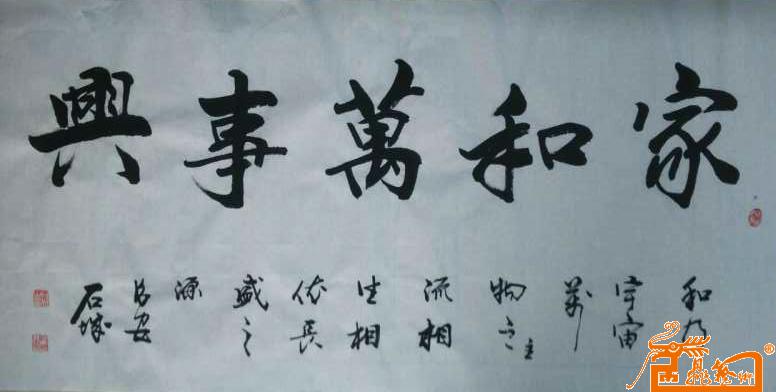 家和萬事興
和乃
宇宙
萬
物之主
流相
生相
依長
盛之
源
安
石城